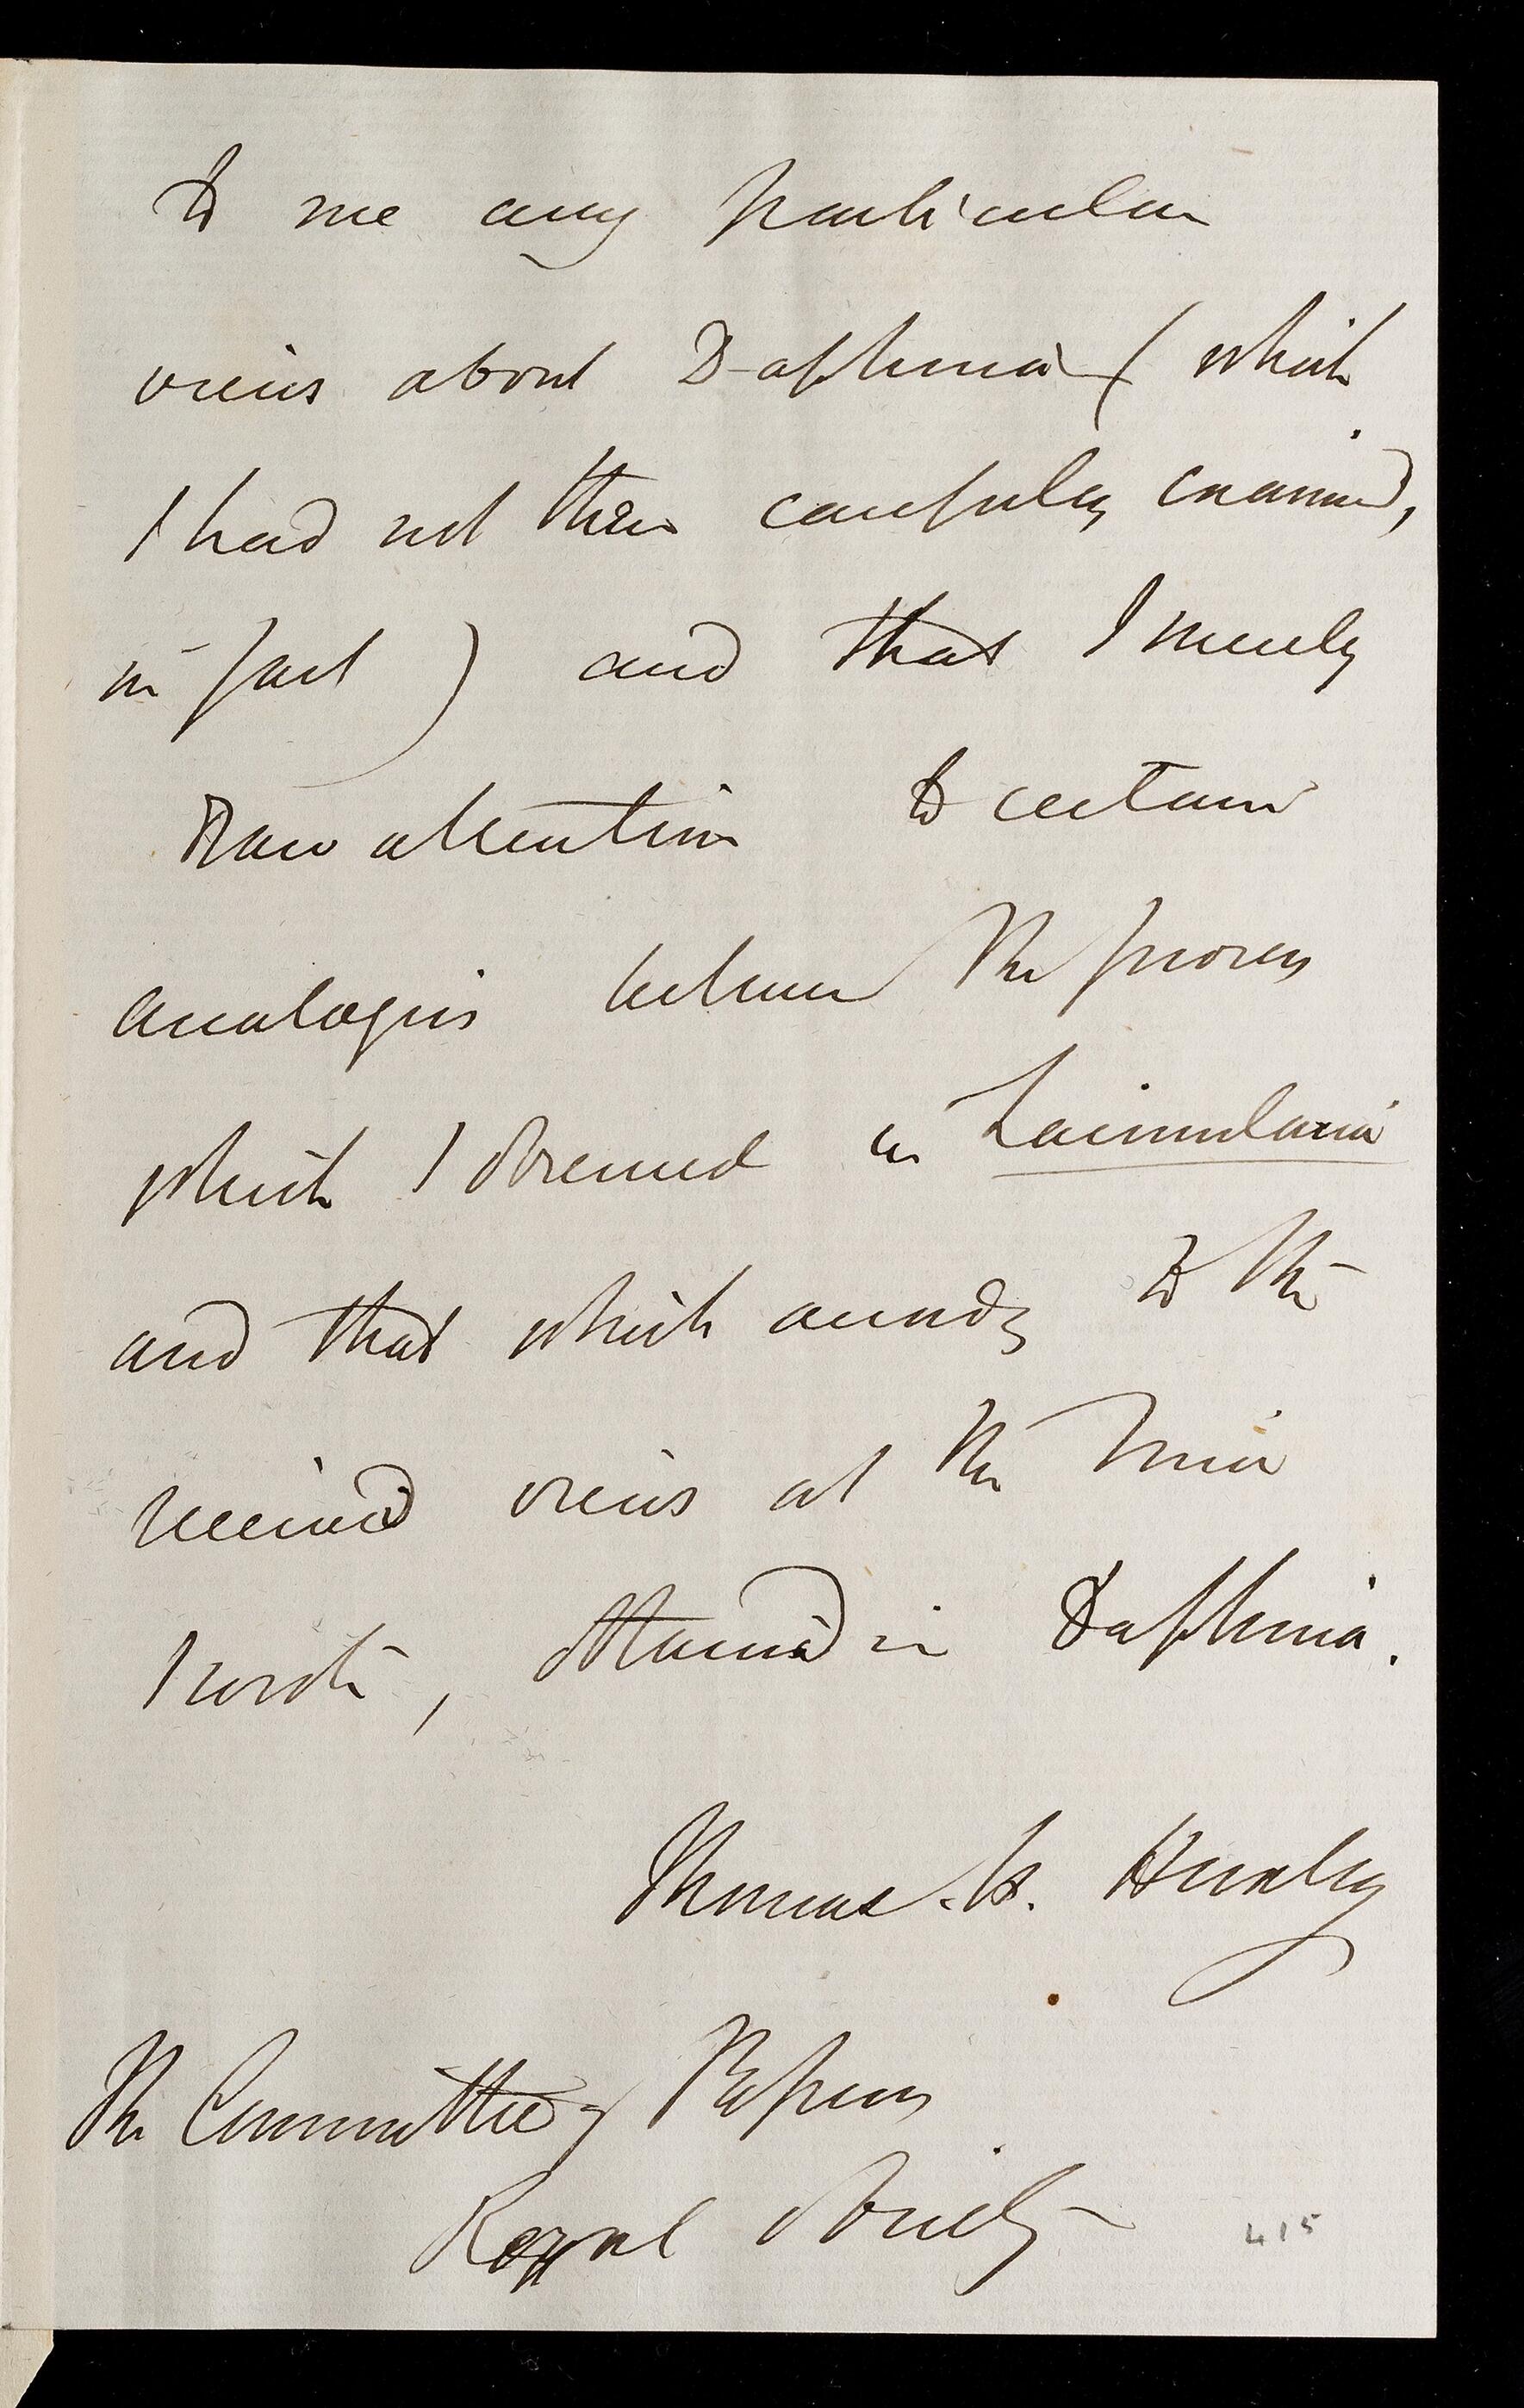 to me any particular
views about Daphnia (which
I had not then carefully examined,
in fact) and that I merely
draw attention to certain
analogies between the process
which I observed in Lacinularia
and that which according to the
received views at the time
I wrote, obtained in Daphnia.
Thomas H. Huxley
The Committee of Papers
Royal Society
415